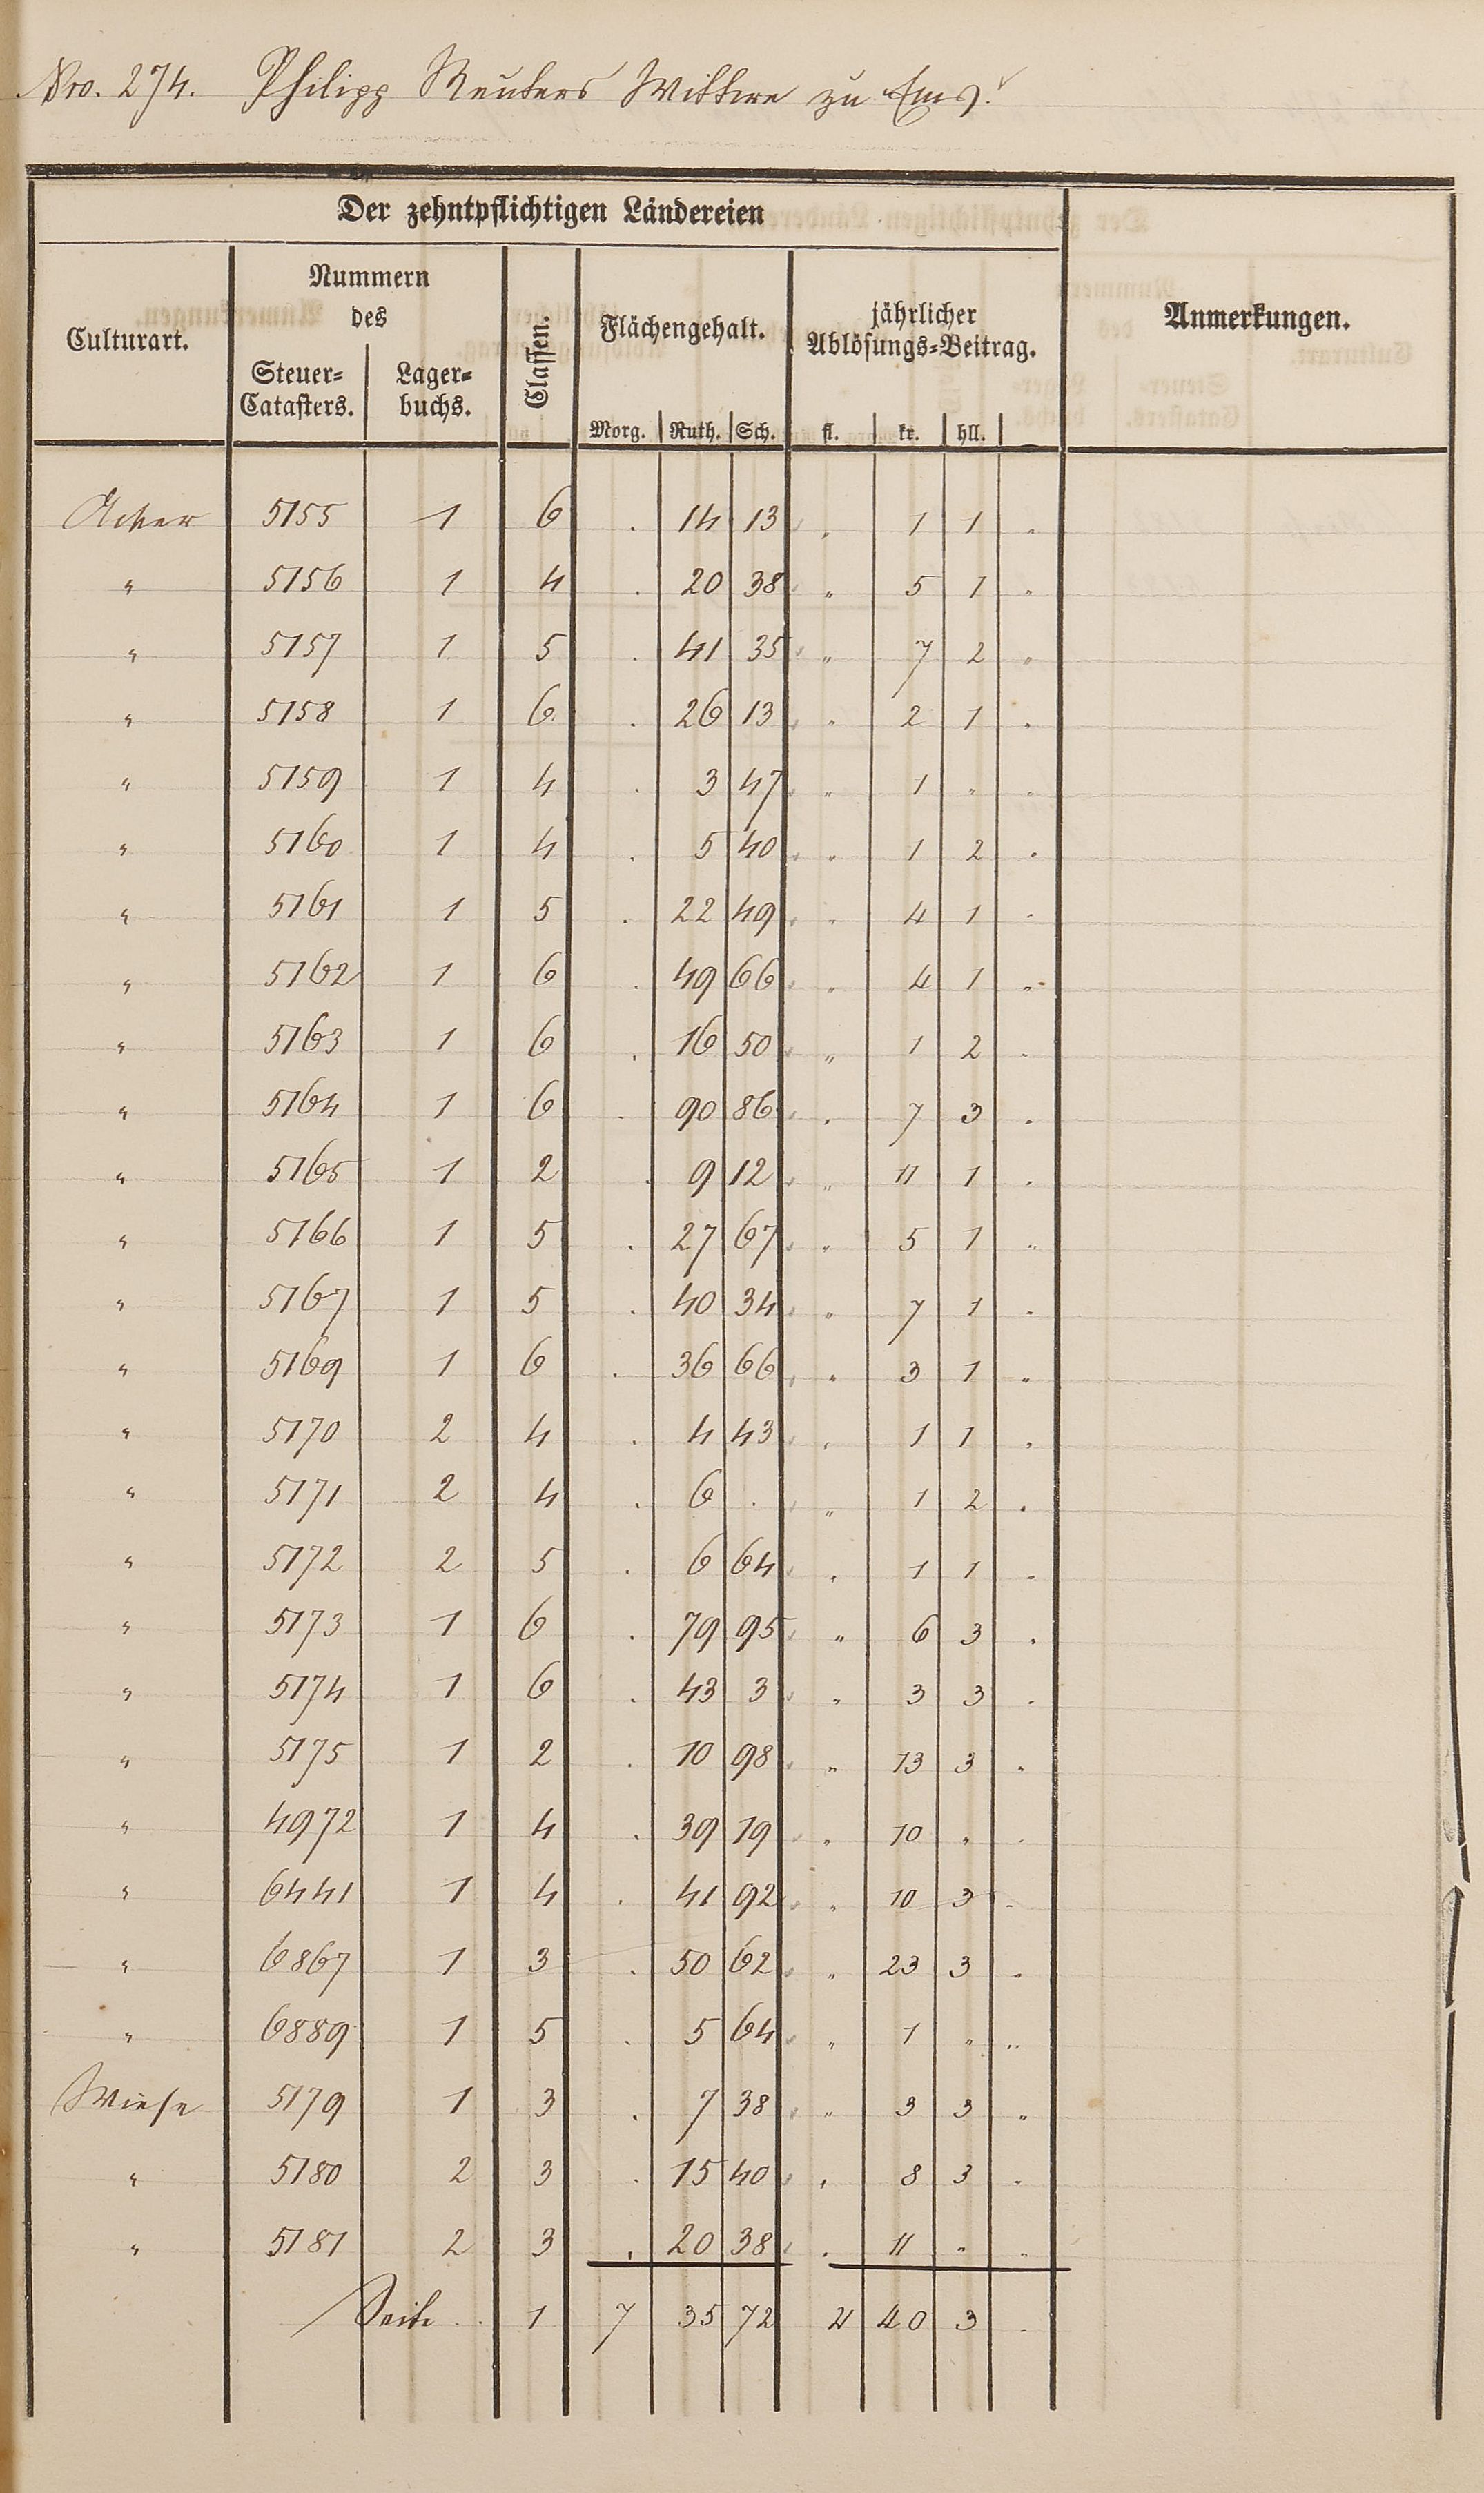 Nro. 274. Philipp Reuters Wittwe zu Ems.
Der zehntpflichtigen Ländereien
Culturart.
Nummern
des
Steuer=
Catasters.
Lager=
buchs.
Classen.
Flächengehalt.
Morg. Ruth. Sch.
jährlicher
Ablösungs=Beitrag.
fl. kr. hll.
Anmerkungen.
Acker 5155 1 6 . 14 13 „ 1 1 „
„ 5156 1 4 . 20 38 „ 5 1 „
„ 5157 1 5 . 41 35 „ 7 2 „
„ 5158 1 6 . 26 13 „ 2 1 „
„ 5159 1 4 . 3 47 „ 1 „ „
„ 5160 1 4 . 5 40 „ 1 2 „
„ 5161 1 5 . 22 49 „ 4 1 „
„ 5162 1 6 . 49 66 „ 4 1 „
„ 5163 1 6 . 16 50 „ 1 2 „
„ 5164 1 6 . 90 86 „ 7 3 „
„ 5165 1 2 . 9 12 „ 11 1 „
„ 5166 1 5 . 27 67 „ 5 1 „
„ 5167 1 5 . 40 34 „ 7 1 „
„ 5169 1 6 . 36 66 „ 3 1 „
„ 5170 2 4 . 4 43 „ 1 1 „
„ 5171 2 4 . 6 . „ 1 2 „
„ 5172 2 5 . 6 64 „ 1 1 „
„ 5173 1 6 . 79 95 „ 6 3 „
„ 5174 1 6 . 43 3 „ 3 3 „
„ 5175 1 2 . 10 98 „ 13 3 „
„ 4972 1 4 . 39 19 „ 10 „ „
„ 6441 1 4 . 41 92 „ 10 3 „
„ 6867 1 3 . 50 62 „ 23 3 „
„ 6889 1 5 . 5 64 „ 1 „ „
Wiese 5179 1 3 . 7 38 „ 3 3 „
„ 5180 2 3 . 15 40 „ 8 3 „
„ 5181 2 3 . 20 38 „ 11 „ „
Seite 1 7 35 72 2 40 3 .